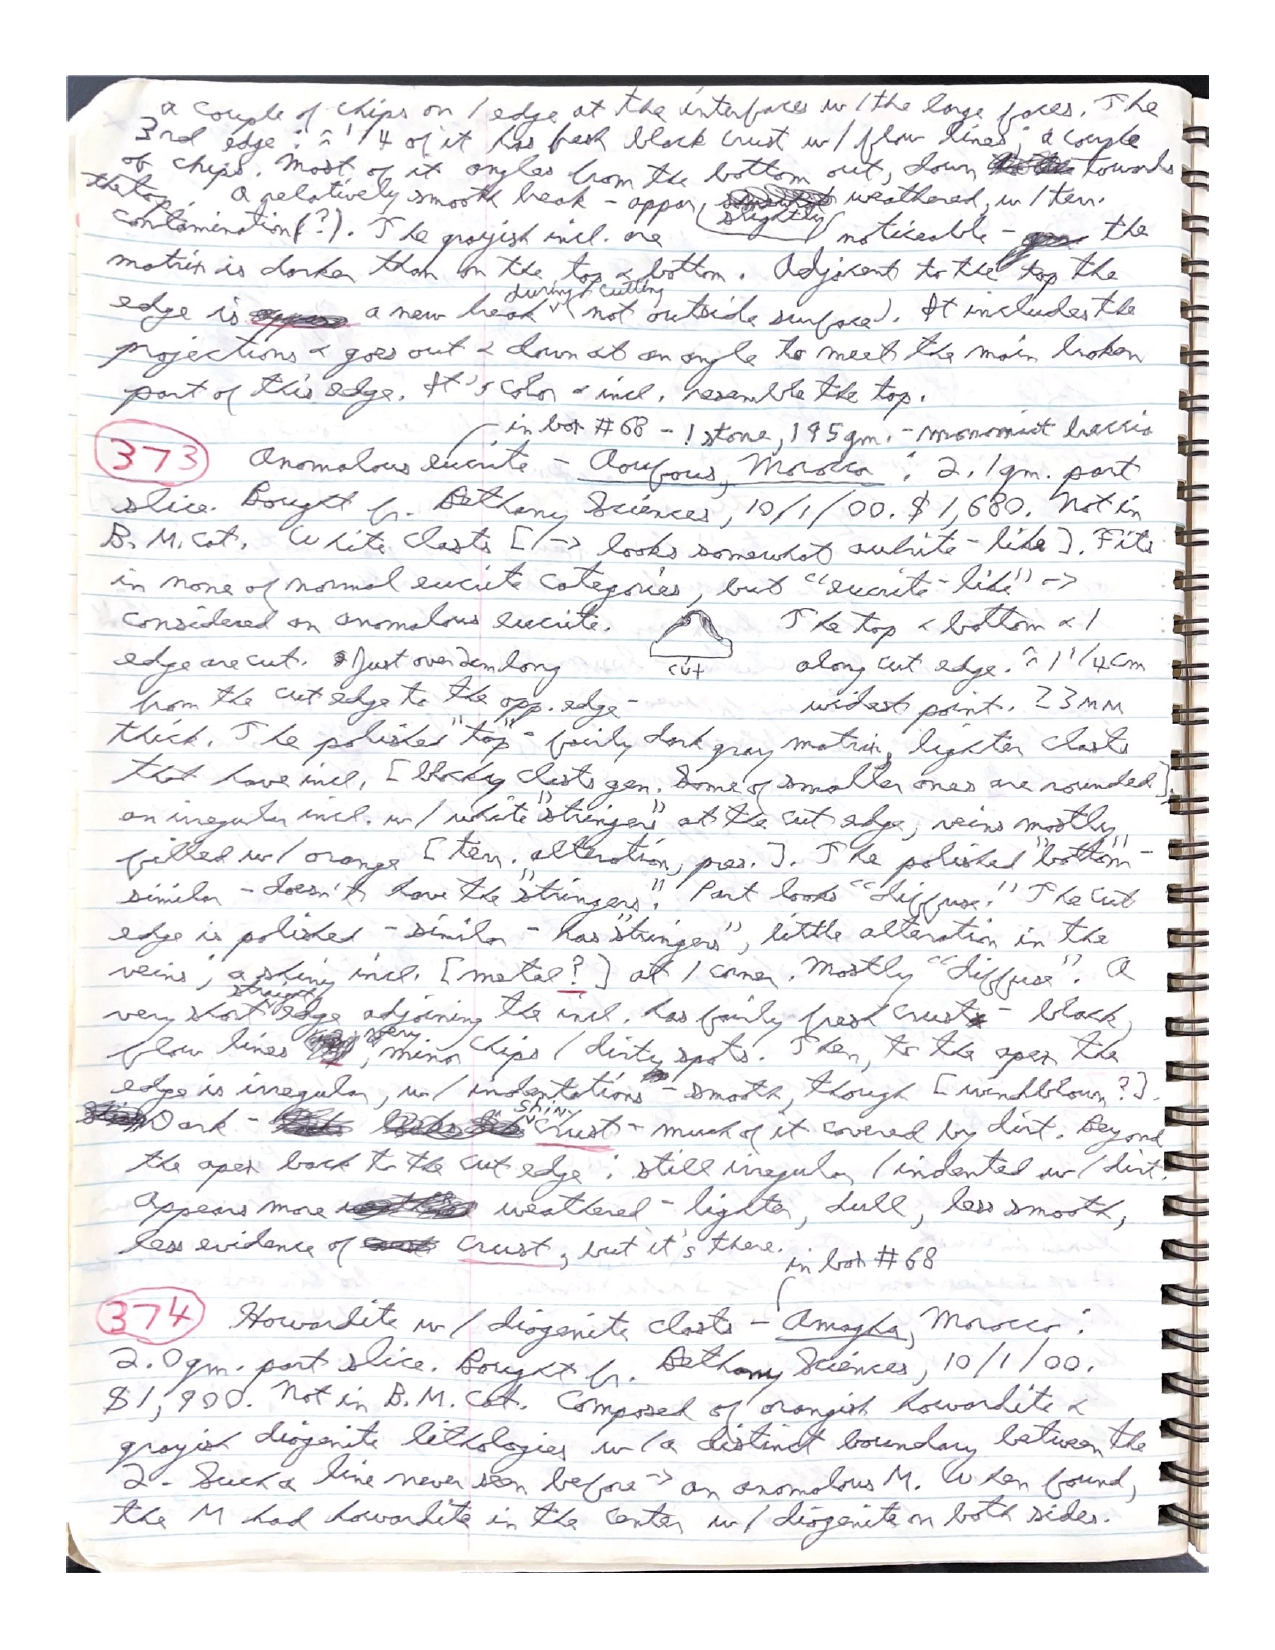 a couple of chips on 1 edge at the interfaces w/ the large faces. The
3rd edge: ≈ 1/4 of it has fresh black crust w/ flow lines; a couple
of chips. Most of it angles from the bottom out, down towards
the top. a relatively smooth break - appar, slightly weathered, w/ terr.
contamination(?). The grayish incl. are noticeable - the
matrix is darker than on the top & bottom. Adjacent to the top the
edge is a new break during cutting (not outside surface). It includes the
projections & goes out & down at an angle to meet the main broken
part of this edge. It's color & incl. resemble the top.
in box #68 - 1 stone, 195gm. - monomict breccia
373 Anomalous eucrite - Aoufous, Morocco : 2.1gm. part
slice. Bought fr. Bethany Sciences, 10/1/00. $1,680. Not in
B.M. Cat. White clasts [/-> looks somewhat aubrite-like]. Fits
in none of normal eucrite categories, but "eucrite-like" ->
considered an anomalous eucrite. The top & bottom & 1
edge are cut. Just over 2cm long along cut edge. ≈ 1 1/4cm
cut
from the cut edge to the opp. edge - widest point. ≥3mm
thick. The polished "top" - fairly dark gray matrix, lighter clasts
that have incl. [blocky clasts gen. Some of smaller ones are rounded],
an irregular incl. w/ white "stringers" at the cut edge, veins mostly
filled w/ orange [terr. alteration, pres.]. The polished "bottom" -
similar - doesn't have the "stringers". Part looks "diffuse." The cut
edge is polished - similar - has "stringers", little alteration in the
veins, a shiny incl. [metal?] at 1 corner. Mostly "diffuse". A
very short straight edge adjoining the incl. has fairly fresh crust - black,
flow lines, very minor chips / dirty spots. Then, to the apex the
edge is irregular, w/ indentations - smooth, though [windblown?].
Dark - shiny crust - much of it covered by dirt. Beyond
the apex back to the cut edge : still irregular / indented w/ dirt.
Appears more weathered - lighter, dull, less smooth,
less evidence of crust, but it's there.
in box #68
374 Howardite w/ diogenite clasts - Amagha, Morocco :
2.0gm. part slice. Bought fr. Bethany Sciences, 10/1/00.
$1,900. Not in B.M. Cat. Composed of orangish howardite &
grayish diogenite lithologies w/ a distinct boundary between the
2 - Such a line never seen before -> an anomalous M. When found,
the M had howardite in the center w/ diogenite on both sides.